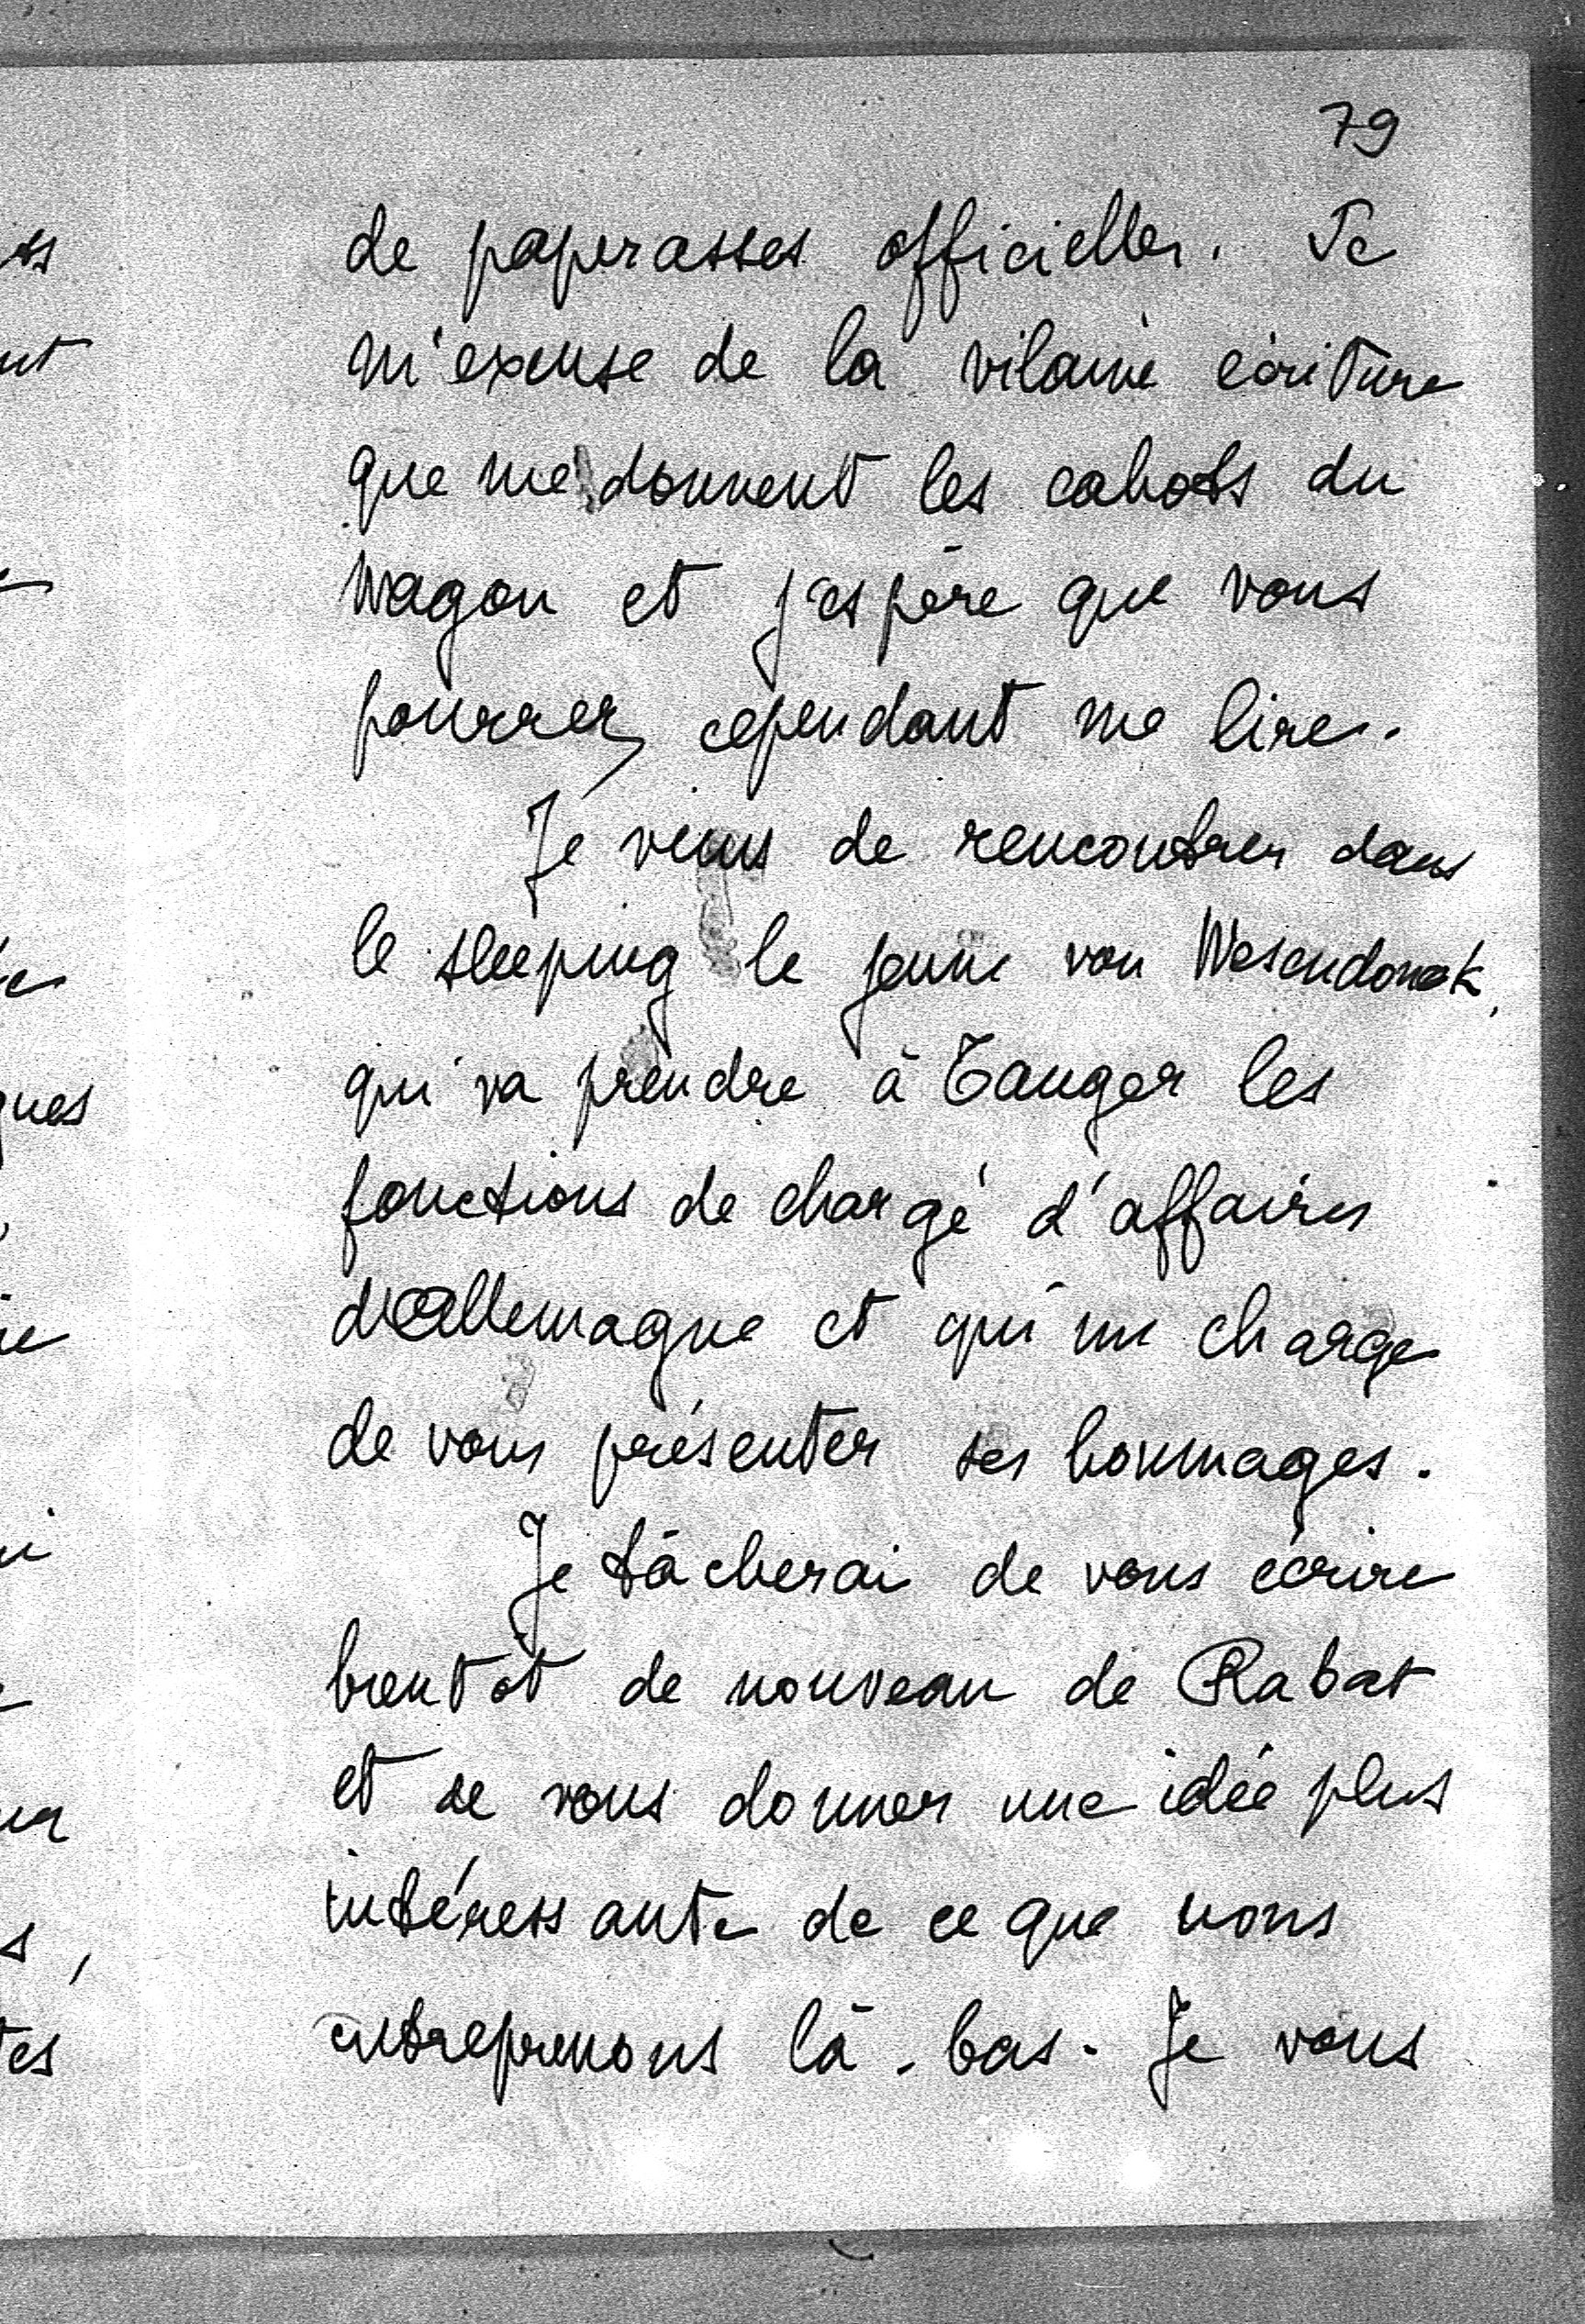 79
de paperasses officielles. Je
m'excuse de la vilaine écriture
que me donnent les cahots du
wagon et j'espère que vous
pourrez cependant me lire.
Je viens de rencontrer dans
le sleeping le jeune von Wesendonck,
qui va prendre à Tanger les
fonctions de chargé d'affaires
d'Allemagne et qui me charge
de vous présenter ses hommages.
Je tâcherai de vous écrire
bientôt de nouveau de Rabat
et de vous donner une idée plus
intéressante de ce que nous
entreprenons là-bas. Je vous